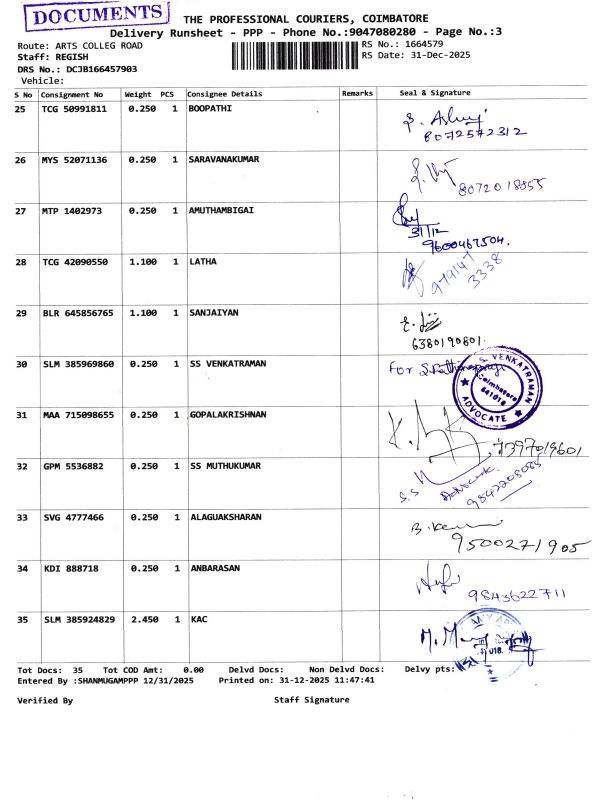 DOCUMENTS
THE PROFESSIONAL COURIERS, COIMBATORE
Delivery Runsheet - PPP - Phone No.:9047080280 - Page No.:3
Route: ARTS COLLEG ROAD
RS No.: 1664579
Staff: REGISH
RS Date: 31-Dec-2025
DRS No.: DCJB166457903
Vehicle:
S No Consignment No Weight PCS Consignee Details Remarks Seal & Signature
25 TCG 50991811 0.250 1 BOOPATHI
8072572312
26 MYS 52071136 0.250 1 SARAVANAKUMAR
8072018955
27 MTP 1402973 0.250 1 AMUTHAMBIGAI
31/12
9600467504.
28 TCG 42090550 1.100 1 LATHA
979147
3338
29 BLR 645856765 1.100 1 SANJAIYAN
6380190801
30 SLM 385969860 0.250 1 SS VENKATRAMAN
For
S. VENKATRAMAN
Coimbatore
641018
ADVOCATE
31 MAA 715098655 0.250 1 GOPALAKRISHNAN
7397019601
32 GPM 5536882 0.250 1 SS MUTHUKUMAR
S.S
Advocate
9842208085
33 SVG 4777466 0.250 1 ALAGUAKSHARAN
9500271905
34 KDI 888718 0.250 1 ANBARASAN
9843622711
35 SLM 385924829 2.450 1 KAC
Tot Docs: 35 Tot COD Amt: 0.00 Delvd Docs: Non Delvd Docs: Delvy pts:
Entered By :SHANMUGAMPPP 12/31/2025 Printed on: 31-12-2025 11:47:41
Verified By Staff Signature